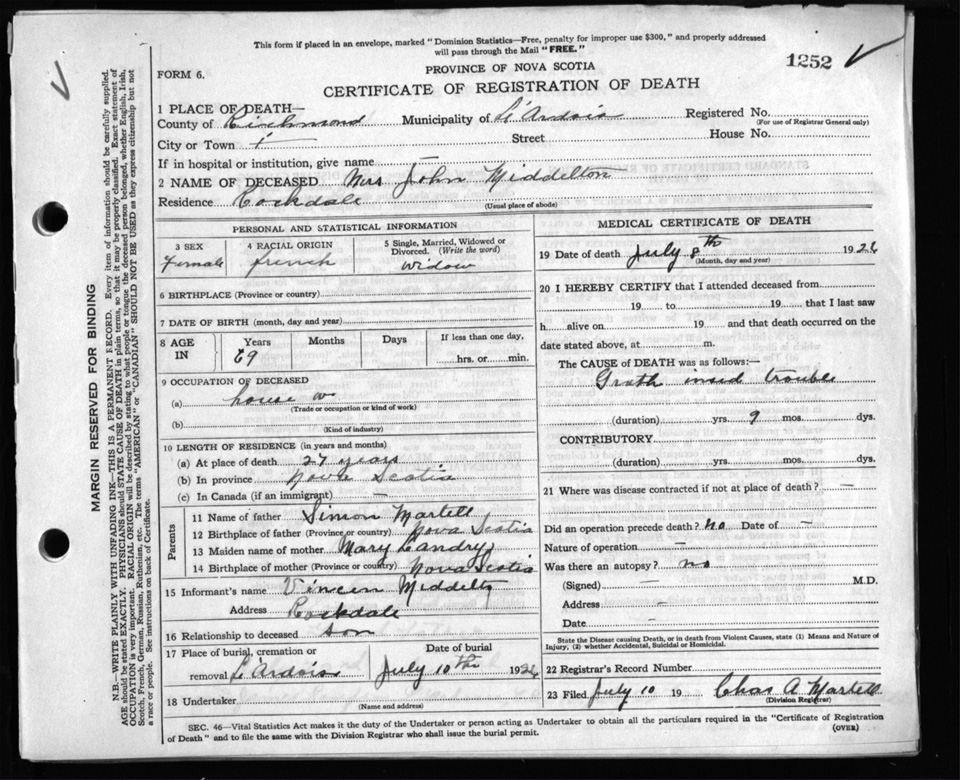 This form if placed in an envelope, marked "Dominion Statistics—Free, penalty for improper use $300," and properly addressed
will pass through the Mail "FREE."
1252
PROVINCE OF NOVA SCOTIA
FORM 6.
CERTIFICATE OF REGISTRATION OF DEATH
1 PLACE OF DEATH—
County of Richmond Municipality of L'Ardois Registered No.
(For use of Registrar General only)
City or Town Street House No.
If in hospital or institution, give name —
2 NAME OF DECEASED Mrs John Middelton
Residence Rockdale (Usual place of abode)
PERSONAL AND STATISTICAL INFORMATION
3 SEX 4 RACIAL ORIGIN 5 Single, Married, Widowed or
Divorced. (Write the word)
Female french widow
6 BIRTHPLACE (Province or country)
7 DATE OF BIRTH (month, day and year)
8 AGE IN Years Months Days If less than one day,
hrs. or min.
9 OCCUPATION OF DECEASED
(a) house w
(Trade or occupation or kind of work)
(b)
(Kind of industry)
10 LENGTH OF RESIDENCE (in years and months)
(a) At place of death 27 years
(b) In province Nova Scotia
(c) In Canada (if an immigrant) —
Parents
11 Name of father Simon Martell
12 Birthplace of father (Province or country) Nova Scotia
13 Maiden name of mother Mary Landry
14 Birthplace of mother (Province or country) Nova Scotia
15 Informant's name Vincen Middelty
Address Rockdale
16 Relationship to deceased son
17 Place of burial, cremation or Date of burial
removal L'Ardois July 10th 1926
18 Undertaker
(Name and address)
MEDICAL CERTIFICATE OF DEATH
19 Date of death July 8th 1926
(Month, day and year)
20 I HEREBY CERTIFY that I attended deceased from
19 to 19 that I last saw
h alive on 19 and that death occurred on the
date stated above, at m.
The CAUSE of DEATH was as follows:—
Groth insid trouble
(duration) yrs. 9 mos. dys.
CONTRIBUTORY
(duration) yrs. mos. dys.
21 Where was disease contracted if not at place of death? —
Did an operation precede death? no Date of —
Nature of operation —
Was there an autopsy? no
(Signed) — M.D.
Address —
Date —
State the Disease causing Death, or in death from Violent Causes, state (1) Means and Nature of
Injury, (2) whether Accidental, Suicidal or Homicidal.
22 Registrar's Record Number
23 Filed July 10 19 Chas A Martell
(Division Registrar)
SEC. 46—Vital Statistics Act makes it the duty of the Undertaker or person acting as Undertaker to obtain all the particulars required in the "Certificate of Registration
of Death" and to file the same with the Division Registrar who shall issue the burial permit. (OVER)
MARGIN RESERVED FOR BINDING
N.B.—WRITE PLAINLY WITH UNFADING INK—THIS IS A PERMANENT RECORD. Every item of information should be carefully supplied.
AGE should be stated EXACTLY. PHYSICIANS should STATE CAUSE OF DEATH in plain terms, so that it may be properly classified. Exact statement of
OCCUPATION is very important. RACIAL ORIGIN will be described by stating to what people or tongue the deceased person belonged, whether English, Irish,
Scotch, French, German, Russian, Ruthenian, etc. The terms "AMERICAN" or "CANADIAN" SHOULD NOT BE USED as they express citizenship but not
a race or people. See instructions on back of Certificate.